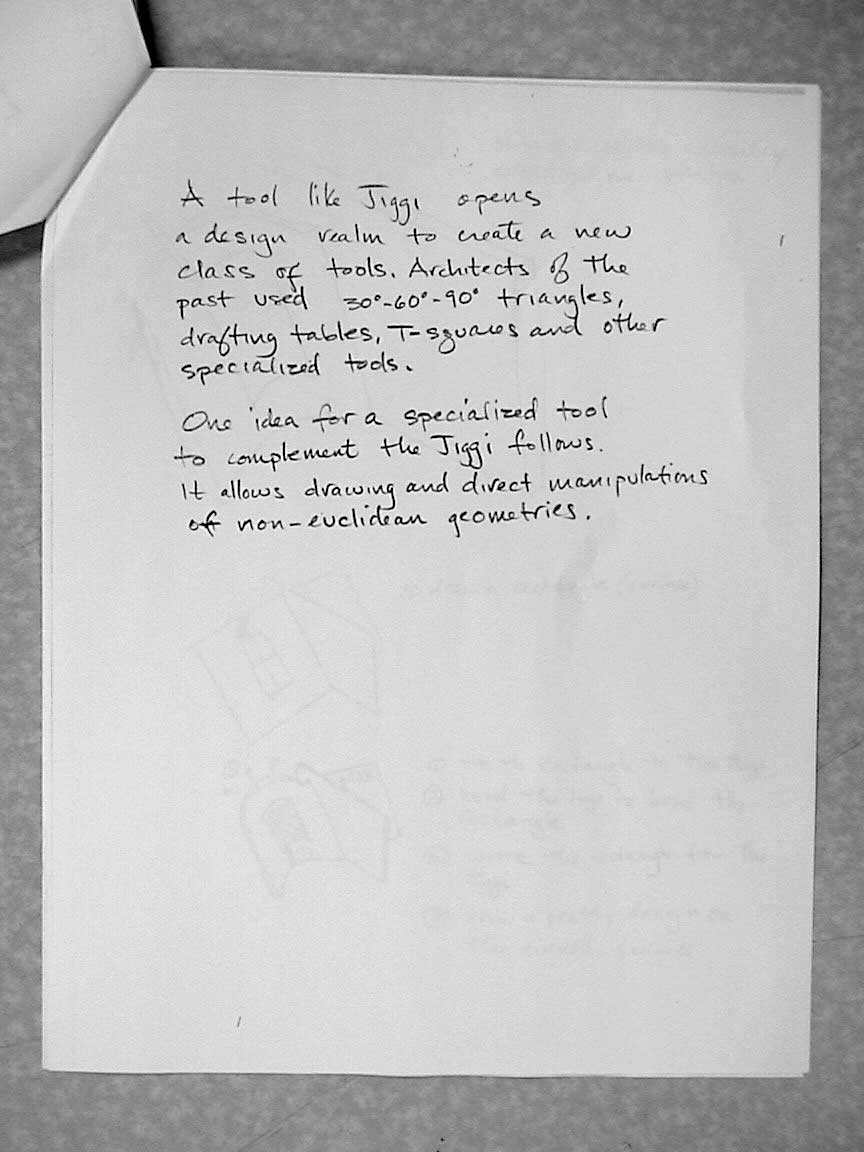 A tool like Jiggi opens
a design realm to create a new
class of tools. Architects of the
past used 30°-60°-90° triangles,
drafting tables, T-squares and other
specialized tools.
One idea for a specialized tool
to complement the Jiggi follows.
It allows drawing and direct manipulations
of non-euclidean geometries.